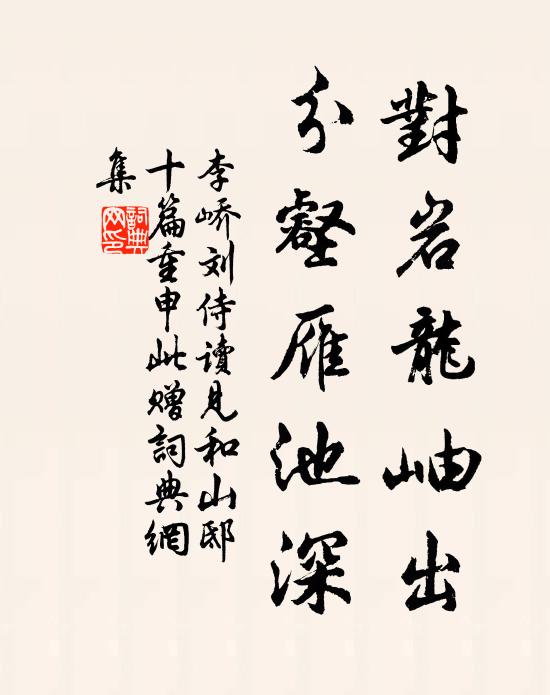 對岩龍岫出
分壑雁池深
李峤刘侍讀見和山邸
十篇重申此赠詞典網
集
詞典
网印